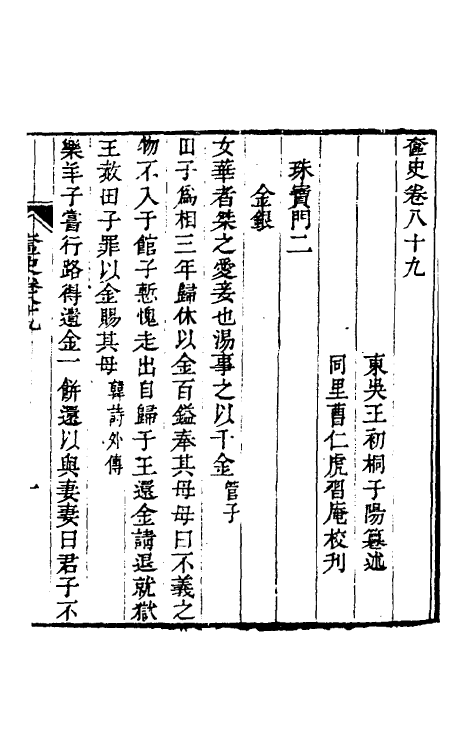 奩史卷八十九
東吳王初桐于陽纂述
同里曹仁虎習庵校刊
珠寶門二
金銀
女華者桀之愛妾也湯事之以千金管子
田子爲相三年歸休以金百鎰奉其母母曰不義之
物不入于館子慙愧走出自歸于王還金請退就獄
王赦田子罪以金賜其母韓詩外傳
樂羊子嘗行路得遺金一餅還以與妻妻曰君子不
奩史卷八十九
一